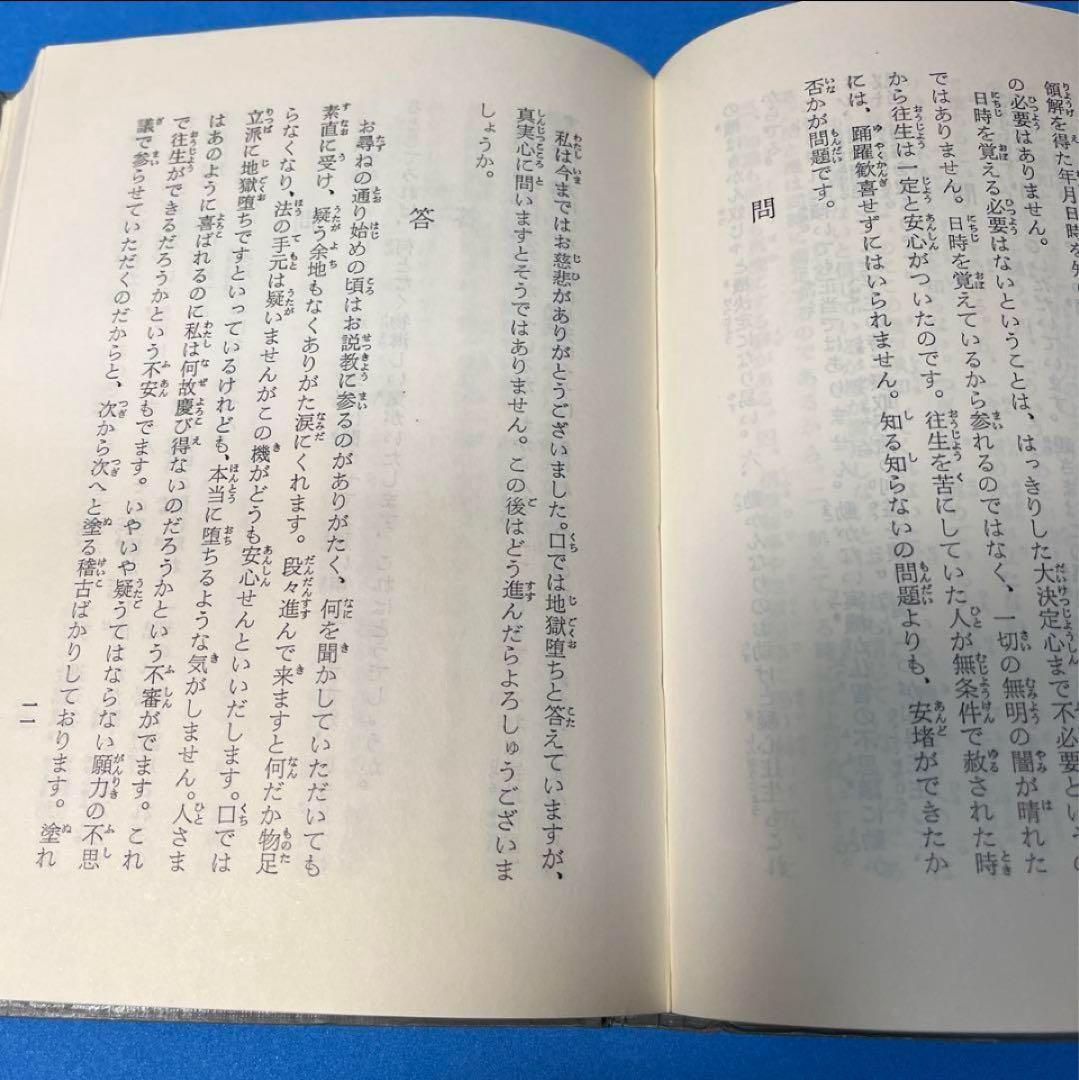 領解を得た年月日時を知
の必要はありません。
日時を覚える必要はないということは、はっきりした大決定心まで不必要という
ではありません。日時を覚えているから参れるのではなく、一切の無明の闇が晴れた
から往生は一定と安心がついたのです。往生を苦にしていた人が無条件で赦された時
には、踊躍歓喜せずにはいられません。知る知らないの問題よりも、安堵ができたか
否かが問題です。
問
私は今まではお慈悲がありがとうございました。口では地獄堕ちと答えていますが、
真実心に問いますとそうではありません。この後はどう進んだらよろしゅうございま
しょうか。
答
お尋ねの通り始めの頃はお説教に参るのがありがたく、何を聞かしていただいても
素直に受け、疑う余地もなくありがた涙にくれます。段々進んで来ますと何だか物足
らなくなり、法の手元は疑いませんがこの機がどうも安心せんといいだします。口では
立派に地獄堕ちですといっているけれども、本当に堕ちるような気がしません。人さま
はあのように喜ばれるのに私は何故慶び得ないのだろうかという不審がでます。これ
で往生ができるだろうかという不安もでます。いやいや疑うてはならない願力の不思
議で参らせていただくのだからと、次から次へと塗る稽古ばかりしております。塗れ
一一